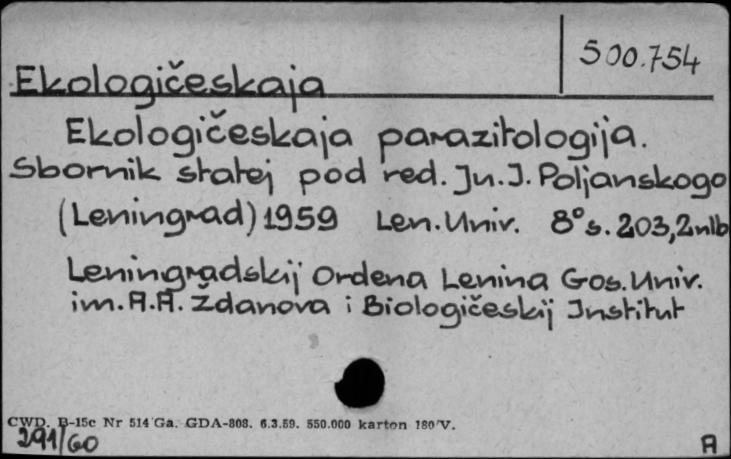 500.754
Ekologičeskaja
Ekologičeskaja parazitologija.
Sbornik statej pod red. Ju. J. Poljanskogo
(Leningrad) 1959 Len. Univ. 8° s. 203, 2 nlb
Leningradskij Ordena Lenina Gos. Univ.
im. A. A. Ždanova i Biologičeskij Institut
CWD. B-15c Nr 514 Ga. GDA-808. 6.3.59. 550.000 karton 180 V.
291/60
A